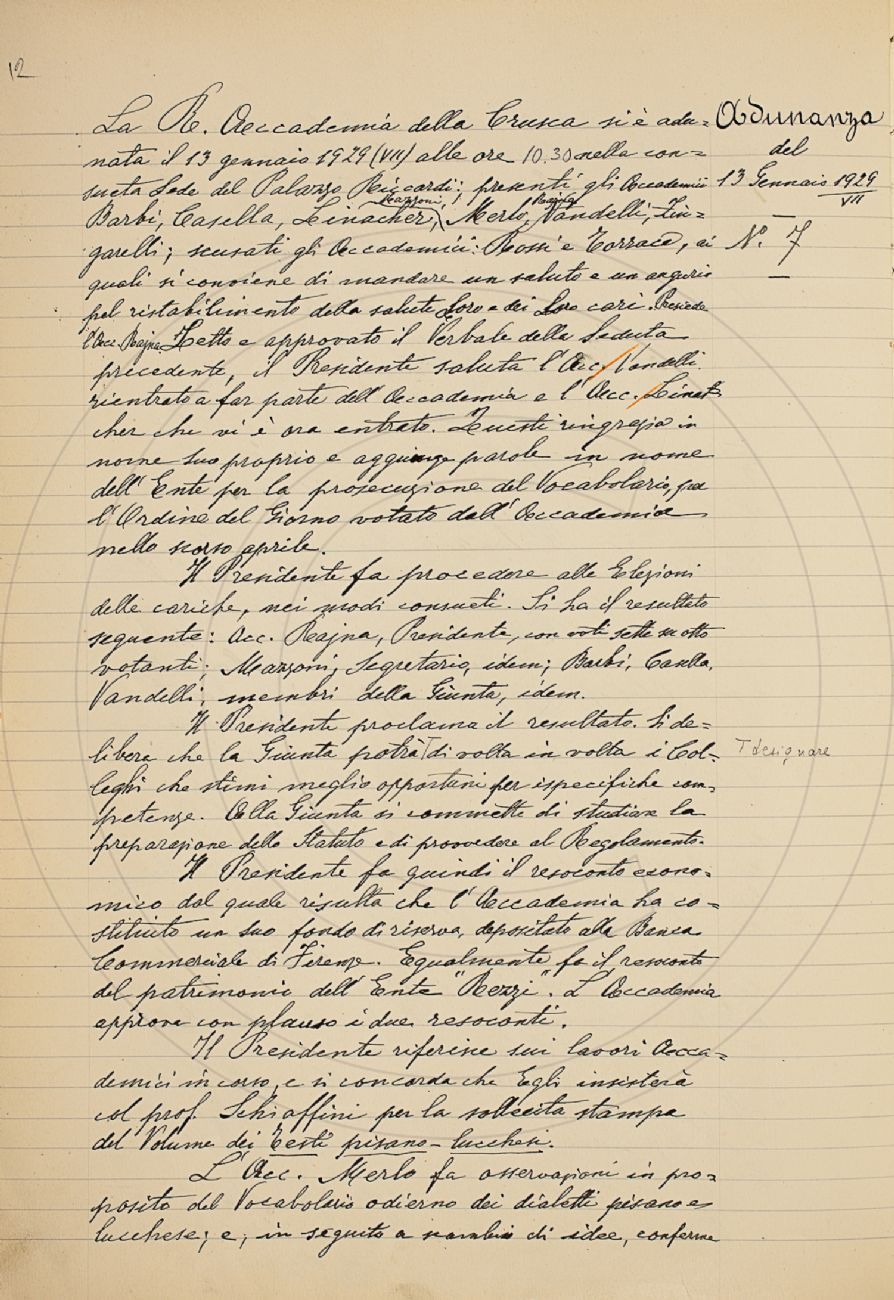 12
Adunanza
del
13 Gennaio 1929
VII
Nº. 7
La R. Accademia della Crusca si è adu=
nata il 13 gennaio 1929 (VII) alle ore 10.30 nella con=
sueta Sede del Palazzo Riccardi: presenti gli Accademici
Mazzoni, Rajna
Barbi, Casella, Linacher, Merlo, Vandelli, Zin=
garelli; scusati gli Accademici: Rossi e Torraca, ai
quali si conviene di mandare un saluto e un augurio
pel ristabilimento della salute Loro e dei Loro cari. Presiede
l'Acc. Rajna Letto e approvato il Verbale della Seduta
precedente, il Presidente saluta l'Acc. Vandelli
rientrato a far parte dell'Accademia e l'Acc. Lina=
cher che vi è ora entrato. Questi ringrazia in
nome suo proprio e aggiunge parole in nome
dell'Ente per la prosecuzione del Vocabolario, per
l'Ordine del Giorno votato dall'Accademia
nello scorso aprile.
Il Presidente fa procedere alle Elezioni
delle cariche, nei modi consueti. Si ha il resultato
seguente: Acc. Rajna, Presidente, con voti sette su otto
votanti; Mazzoni, Segretario, idem; Barbi, Casella,
Vandelli, membri della Giunta, idem.
Il Presidente proclama il resultato. Si de=
libera che la Giunta potrà T di volta in volta i Col=
T designare
leghi che stimi meglio opportuni per ispecifiche com=
petenze. Alla Giunta si commette di studiare la
preparazione dello Statuto e di provvedere al Regolamento.
Il Presidente fa quindi il resoconto econo=
mico dal quale risulta che l'Accademia ha co=
stituito un suo fondo di riserva, depositato alla Banca
Commerciale di Firenze. Egualmente fa il resoconto
del patrimonio dell'Ente "Rezzi". L'Accademia
approva con plauso i due resoconti.
Il Presidente riferisce sui lavori Acca=
demici in corso, e si concorda che Egli insisterà
col prof. Schiaffini per la sollecita stampa
del Volume dei Testi pisano-lucchesi.
L'Acc. Merlo fa osservazioni in pro=
posito del Vocabolario odierno dei dialetti pisano e
lucchese; e, in seguito a scambio di idee, conferma